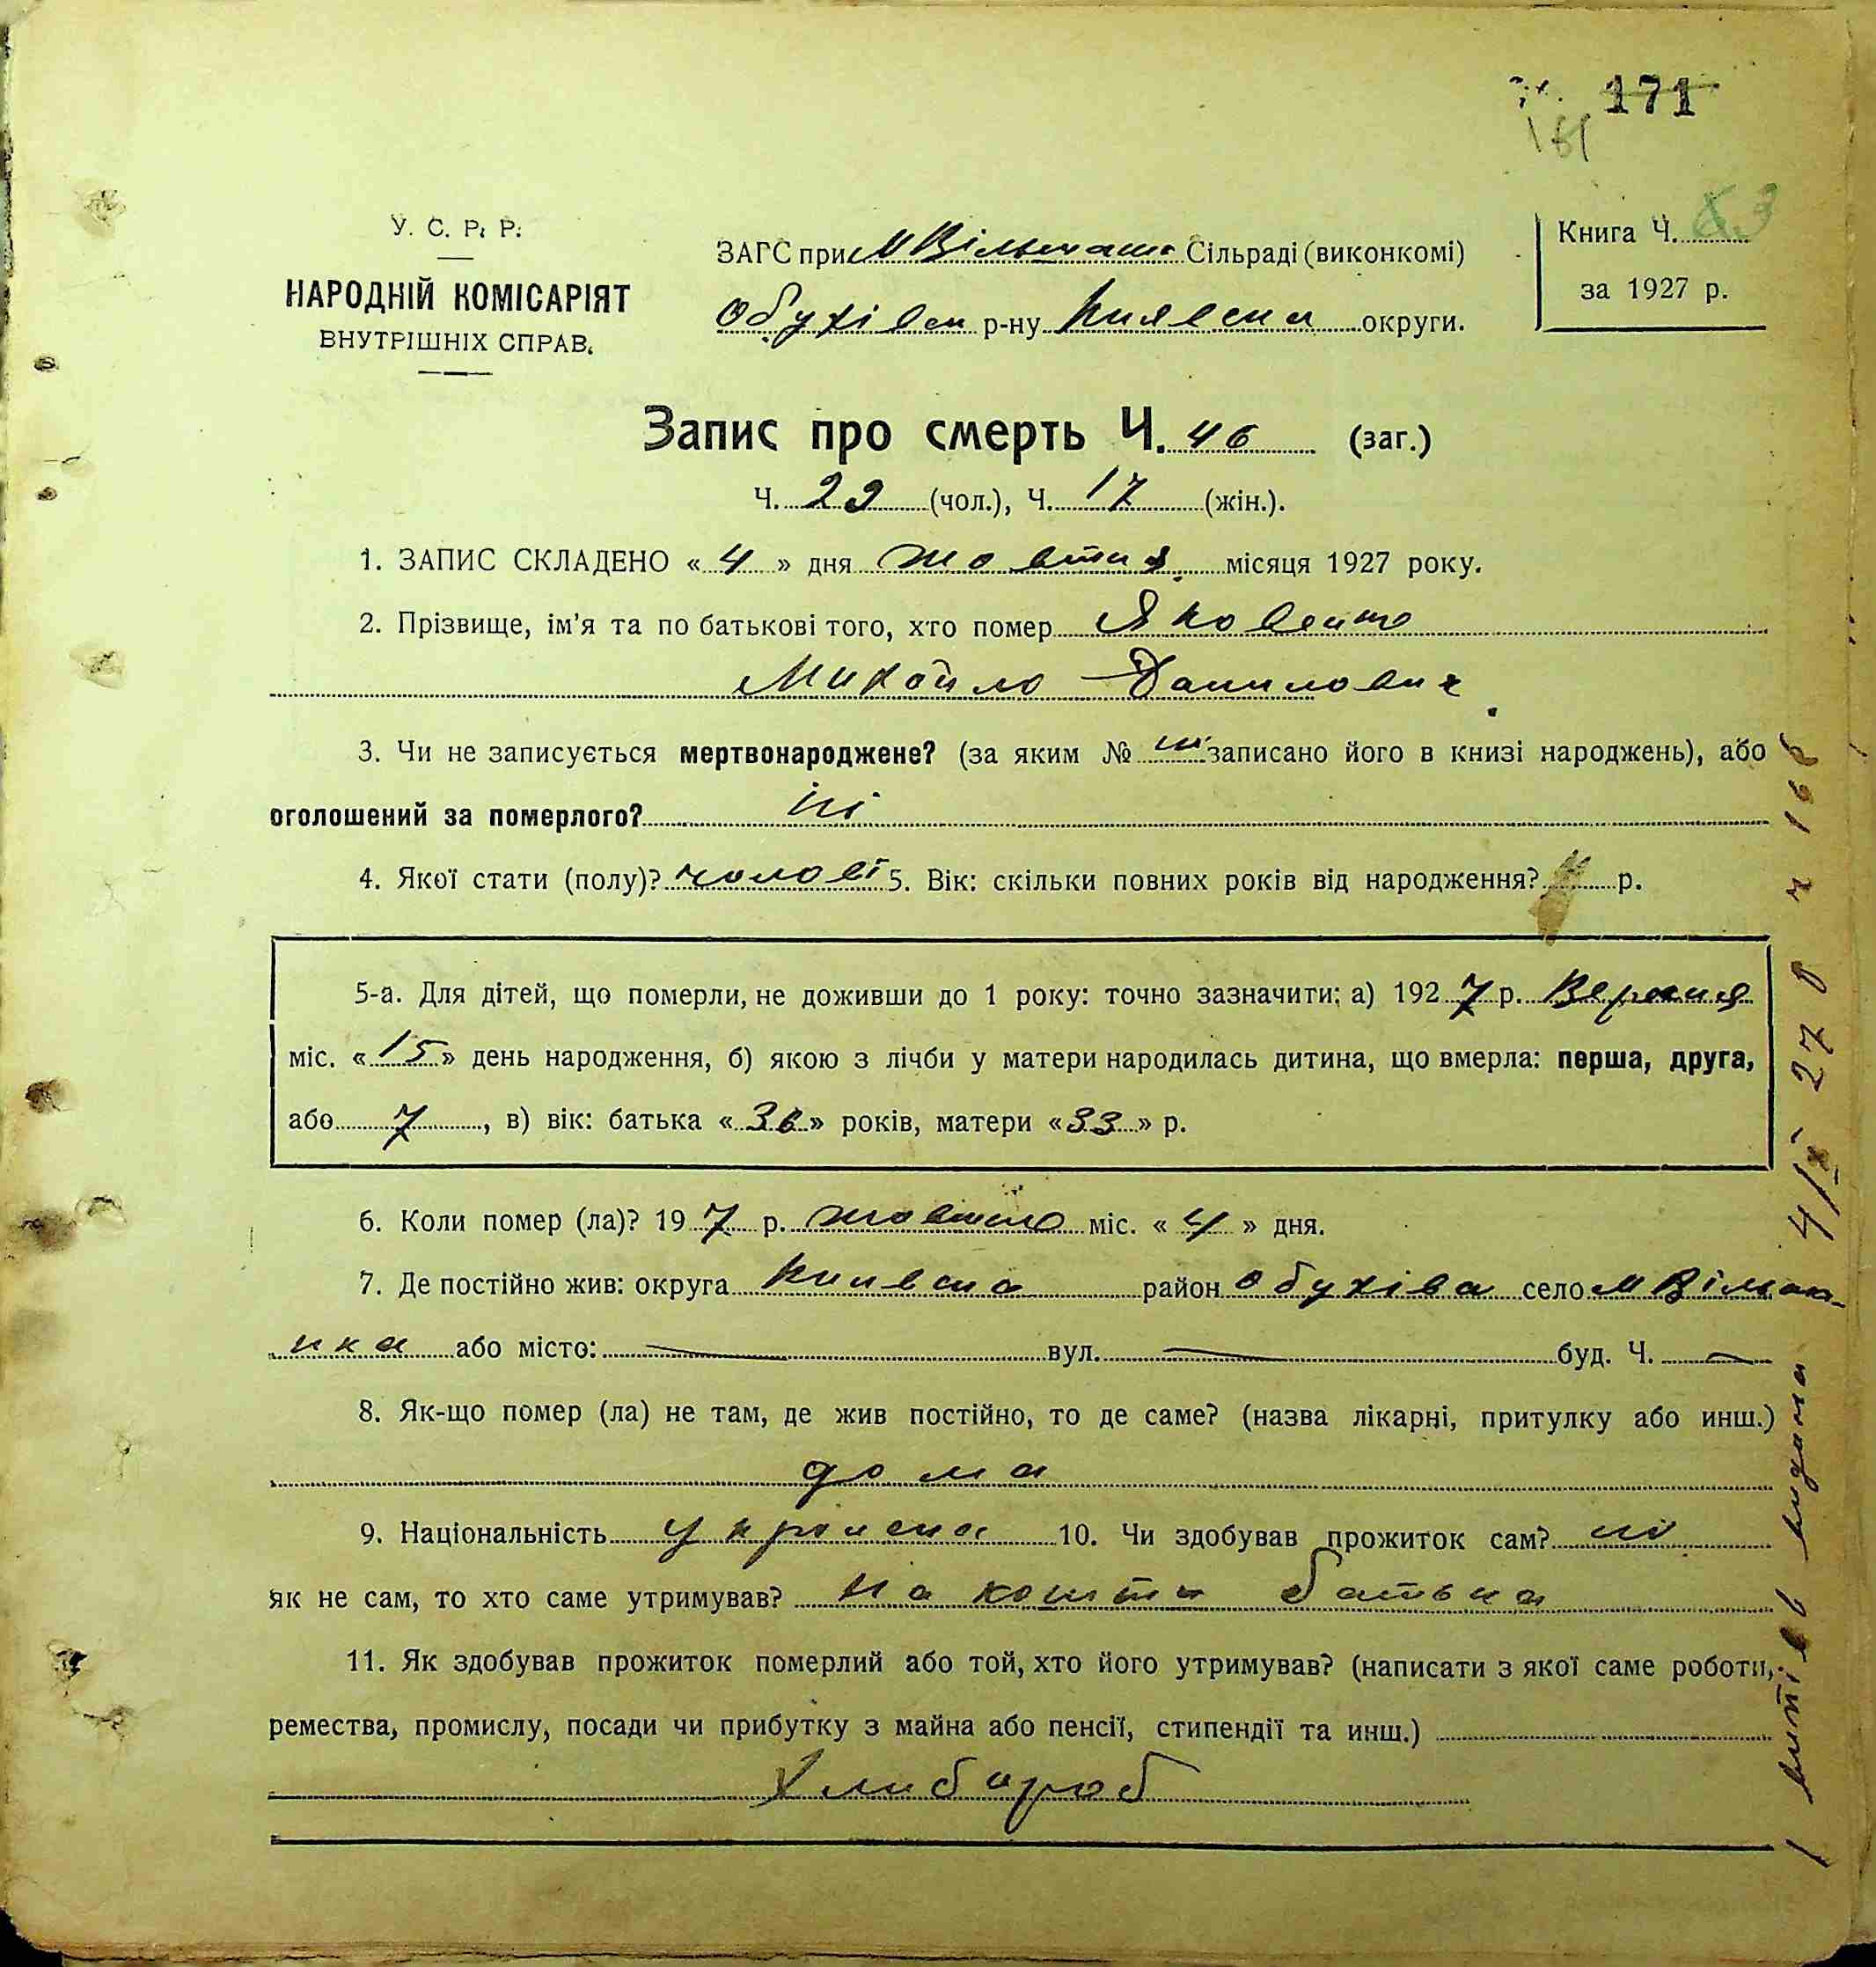 171
161
У. С. Р. Р.
НАРОДНІЙ КОМІСАРІЯТ
ВНУТРІШНІХ СПРАВ.
ЗАГС при М Вільшансь Сільраді (виконкомі)
Обухівск р-ну Киявска округи.
Книга Ч. 83
за 1927 р.
Запис про смерть Ч. 46 (заг.)
Ч. 29 (чол.), Ч. 17 (жін.).
1. ЗАПИС СКЛАДЕНО « 4 » дня жовтня місяця 1927 року.
2. Прізвище, ім'я та по батькові того, хто помер Яковенко
Михайло Данилович
3. Чи не записується мертвонароджене? (за яким № ні записано його в книзі народжень), або
оголошений за померлого? ні
4. Якої стати (полу)? чолові 5. Вік: скільки повних років від народження? р.
5-а. Для дітей, що померли, не доживши до 1 року: точно зазначити: а) 192 7 р. Вересня
міс. « 15 » день народження, б) якою з лічби у матери народилась дитина, що вмерла: перша, друга,
або 7, в) вік: батька « 36 » років, матери « 33 » р.
6. Коли помер (ла)? 19 7 р. жовтня міс. « 4 » дня.
7. Де постійно жив: округа Киевска район Обухівск село М Вільшан-
нка або місто: вул. буд. Ч.
8. Як-що помер (ла) не там, де жив постійно, то де саме? (назва лікарні, притулку або инш.)
дома
9. Національність украиенс 10. Чи здобував прожиток сам? ні
як не сам, то хто саме утримував? На кошти батька
11. Як здобував прожиток померлий або той, хто його утримував? (написати з якої саме роботи,
ремества, промислу, посади чи прибутку з майна або пенсії, стипендії та инш.)
Хлибароб
витів видана 4/X 27 р ч 166